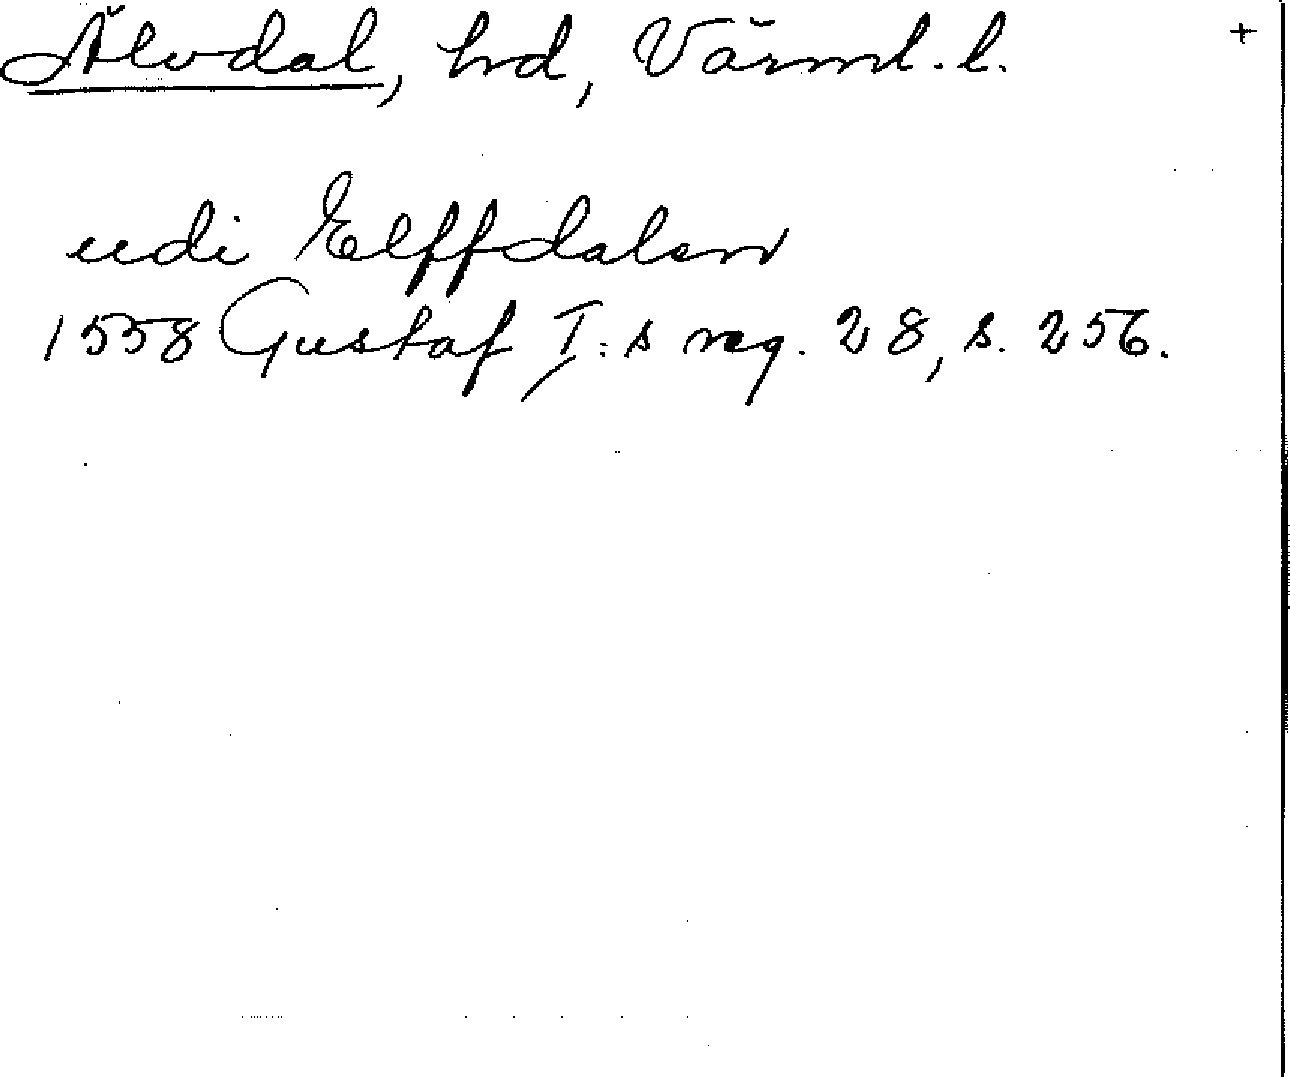 Älvdal, hd, Värml. l. +
udi Elffdalen
1558 Gustaf I:s reg. 28, s. 256.